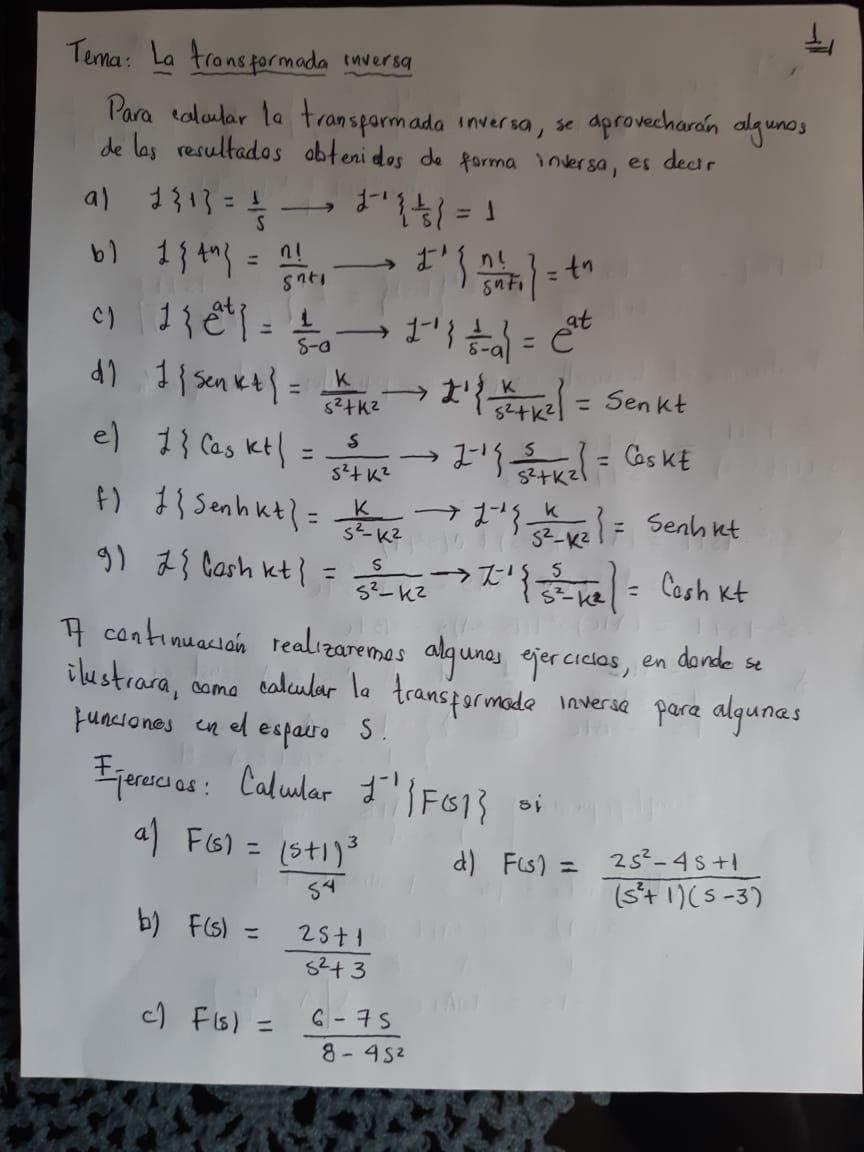 1
Tema: La transformada inversa
Para calcular la transformada inversa, se aprovecharán algunos
de los resultados obtenidos de forma inversa, es decir
a) ℒ{1} = 1/s ⟶ ℒ⁻¹{1/s} = 1
b) ℒ{tⁿ} = n!/sⁿ⁺¹ ⟶ ℒ⁻¹{n!/sⁿ⁺¹} = tⁿ
c) ℒ{eᵃᵗ} = 1/(s-a) ⟶ ℒ⁻¹{1/(s-a)} = eᵃᵗ
d) ℒ{sen kt} = k/(s²+k²) ⟶ ℒ⁻¹{k/(s²+k²)} = Sen kt
e) ℒ{Cos kt} = s/(s²+k²) ⟶ ℒ⁻¹{s/(s²+k²)} = Cos kt
f) ℒ{Senh kt} = k/(s²-k²) ⟶ ℒ⁻¹{k/(s²-k²)} = Senh kt
g) ℒ{Cosh kt} = s/(s²-k²) ⟶ ℒ⁻¹{s/(s²-k²)} = Cosh kt
A continuación realizaremos algunos ejercicios, en donde se
ilustrara, como calcular la transformada inversa para algunas
funciones en el espacio S.
Ejerescios: Calcular ℒ⁻¹{F(s)} si
a) F(s) = (s+1)³/s⁴
d) F(s) = (2s²-4s+1)/((s²+1)(s-3))
b) F(s) = (2s+1)/(s²+3)
c) F(s) = (6-7s)/(8-4s²)